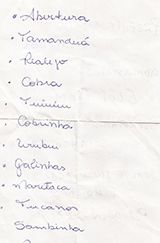 • Abertura
• Tamanduá
• Realejo
• Cobra
• Tuiuiu
• Cobrinha
• Urubu
• Galinhas
• Maritaca
• Tucanos
Sambinha